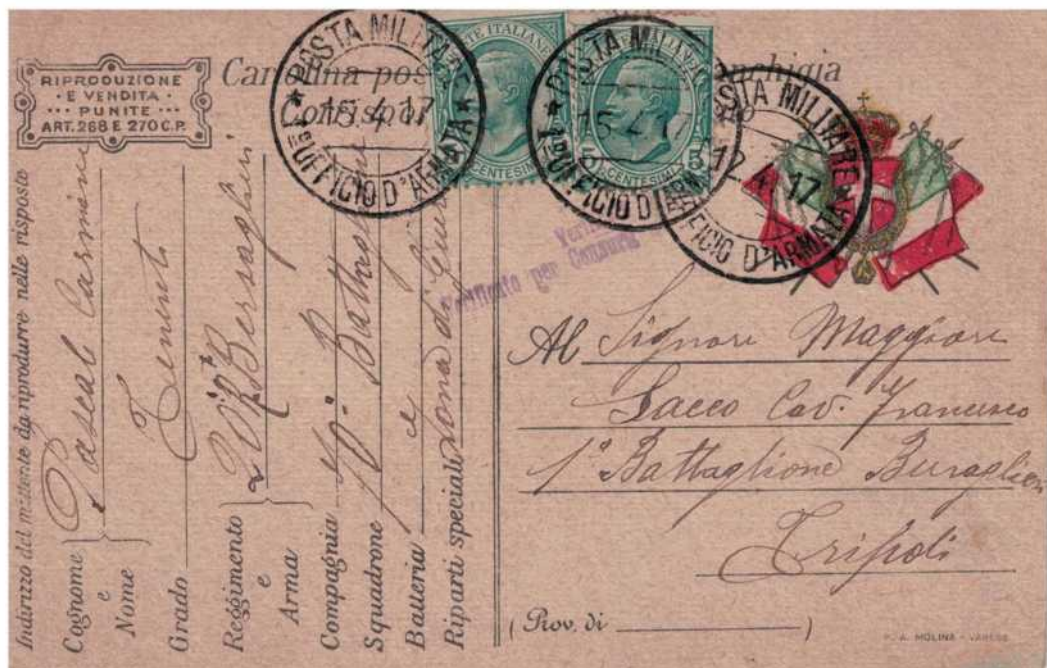 RIPRODUZIONE
E VENDITA
PUNITE
ART. 268 E 270 C.P.
Cartolina pos
Corrispon
anchigia
POSTE ITALIANE
CENTESIMI
CENTESIMI 5
POSTA MILITARE
16.4.17
1ª UFFICIO D'ARMATA
POSTA MILITARE
16.4.17
1ª UFFICIO D'ARMATA
POSTA MILITARE
12.4.17
UFFICIO D'ARMATA
Verificato per Censura
Indirizzo del mittente da riprodurre nelle risposte
Cognome e Nome Pascal Carmine
Grado Tenente
Reggimento e Arma Bersaglieri
Compagnia
Squadrone
Batteria
Riparti speciali Zona di Guerra
Al Signore Maggiore
Sacco Cav. Francesco
1º Battaglione Bersaglieri
Tripoli
(Prov. di )
P. A. MOLINA - VARESE